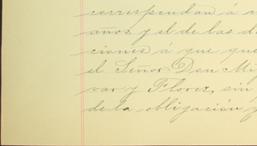 correspondan á
años y el de las d
ciones á que que
el Señor Don Mi
var y Florez, sin
de la obligación